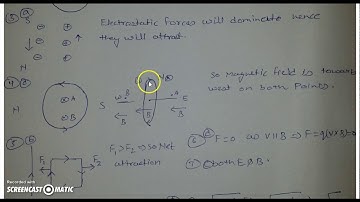 Electrostatic forces will dominate hence
they will attract.
N
So Magnetic field is towards
west on both Points.
A
B
S
E
B
B
B
F₁
F₂
F₁>F₂ ⇒ So Net
attraction
F=0 as V∥B ⇒ F=q(V×B)=0
both E & B.
Recorded with
SCREENCAST-O-MATIC